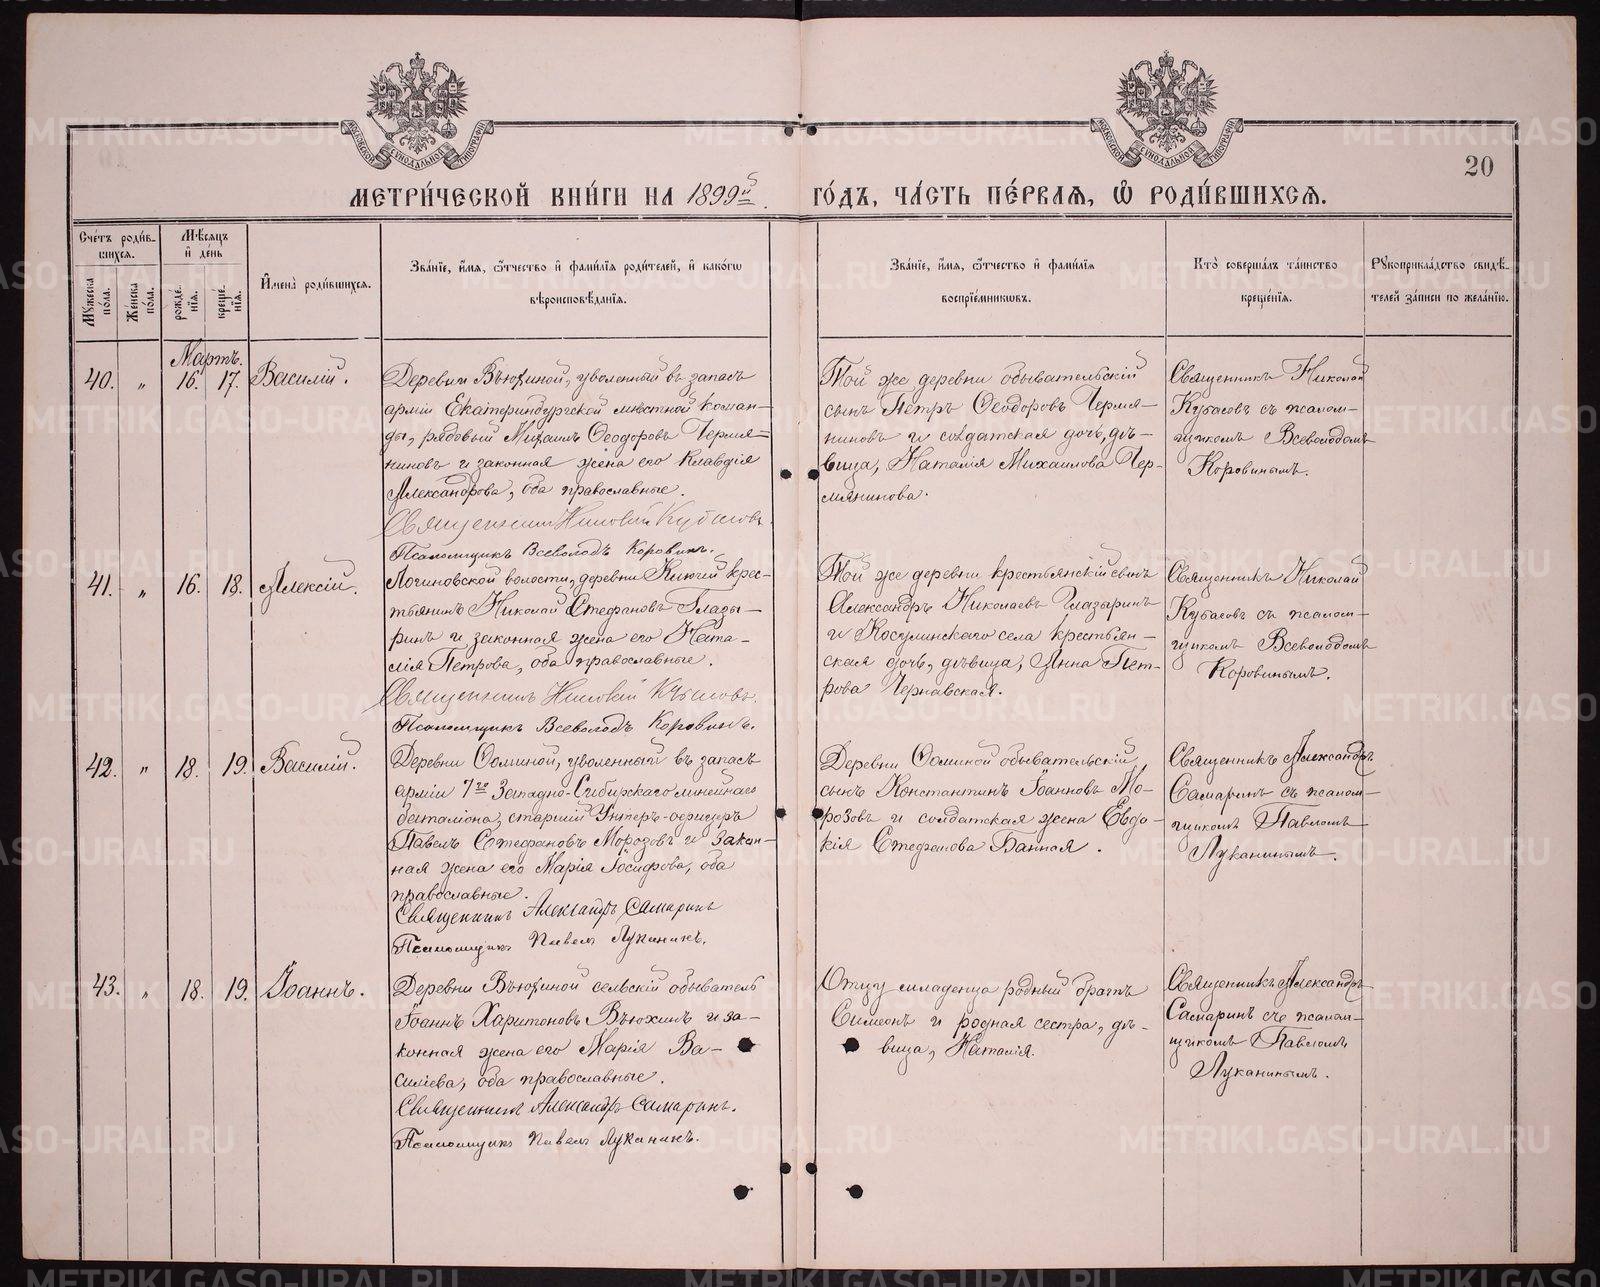 МОСКОВСКОЙ СѴНОДАЛЬНОЙ ТИПОГРАФІИ
МОСКОВСКОЙ СѴНОДАЛЬНОЙ ТИПОГРАФІИ
20
МЕТРИ́ЧЕСКОЙ КНИ́ГИ НА 1899й ГО́ДЪ, ЧА́СТЬ ПЕ́РВАѦ, Ѽ РОДИ́ВШИХСѦ.
Сче́тъ роди́в-
шихся.
Мꙋжеска по́ла.
Же́нска по́ла.
Мѣ́сяцъ и҆ де́нь
рожде́нїя.
креще́нїя.
И҆мена̀ роди́вшихся.
Зва́нїе, и҆́мя, ѻ҆́тчество и҆ фами́лїя роди́телей, и҆ како́гѡ
вѣроисповѣ́данїя.
Зва́нїе, и҆́мя, ѻ҆́тчество и҆ фами́лїя
воспрїе́мниковъ.
Кто̀ соверша́лъ та́инство
креще́нїя.
Рꙋкоприкла́дство свидѣ́-
телей за́писи по жела́нїю.
Мартъ.
40. „ 16. 17. Василій.
Деревни Вьюхиной, уволенный въ запасъ
арміи Екатеринбургской мѣстной коман-
ды, рядовый Михаилъ Ѳеодоровъ Чермя-
ниновъ и законная жена его Клавдія
Александрова, оба православные.
Священникъ Николай Кубасовъ.
Псаломщикъ Всеволодъ Коровинъ.
Той же деревни обывательскій
сынъ Петръ Ѳеодоровъ Чермя-
ниновъ и солдатская дочь, дѣ-
вица, Наталія Михаилова Чер-
мянинова.
Священникъ Николай
Кубасовъ съ псалом-
щикомъ Всеволодомъ
Коровинымъ.
41. „ 16. 18. Алексій.
Логиновской волости, деревни Ключи крес-
тьянинъ Николай Стефановъ Глазы-
ринъ и законная жена его Ната-
лія Петрова, оба православные.
Священникъ Николай Кубасовъ.
Псаломщикъ Всеволодъ Коровинъ.
Той же деревни крестьянскій сынъ
Александръ Николаевъ Глазыринъ
и Косулинскаго села крестьян-
ская дочь, дѣвица, Анна Пет-
рова Чернавская.
Священникъ Николай
Кубасовъ съ псалом-
щикомъ Всеволодомъ
Коровинымъ.
42. „ 18. 19. Василій.
Деревни Ѳоминой, уволенный въ запасъ
арміи 7го Западно-Сибирскаго линейнаго
баталіона, старшій Унтеръ-офицеръ
Павелъ Стефановъ Морозовъ и закон-
ная жена его Марія Іосифова, оба
православные.
Священникъ Александръ Самаринъ
Псаломщикъ Павелъ Луканинъ.
Деревни Ѳоминой обывательскій
сынъ Константинъ Іоанновъ Мо-
розовъ и солдатская жена Евдо-
кія Стефанова Банная.
Священникъ Александръ
Самаринъ съ псалом-
щикомъ Павломъ
Луканинымъ.
43. „ 18. 19. Іоаннъ.
Деревни Вьюхиной сельскій обыватель
Іоаннъ Харитоновъ Вьюхинъ и за-
конная жена его Марія Ва-
силіева, оба православные.
Священникъ Александръ Самаринъ.
Псаломщикъ Павелъ Луканинъ.
Отцу младенца родный братъ
Симеонъ и родная сестра, дѣ-
вица, Наталія.
Священникъ Александръ
Самаринъ съ псалом-
щикомъ Павломъ
Луканинымъ.
METRIKI.GASO-URAL.RU